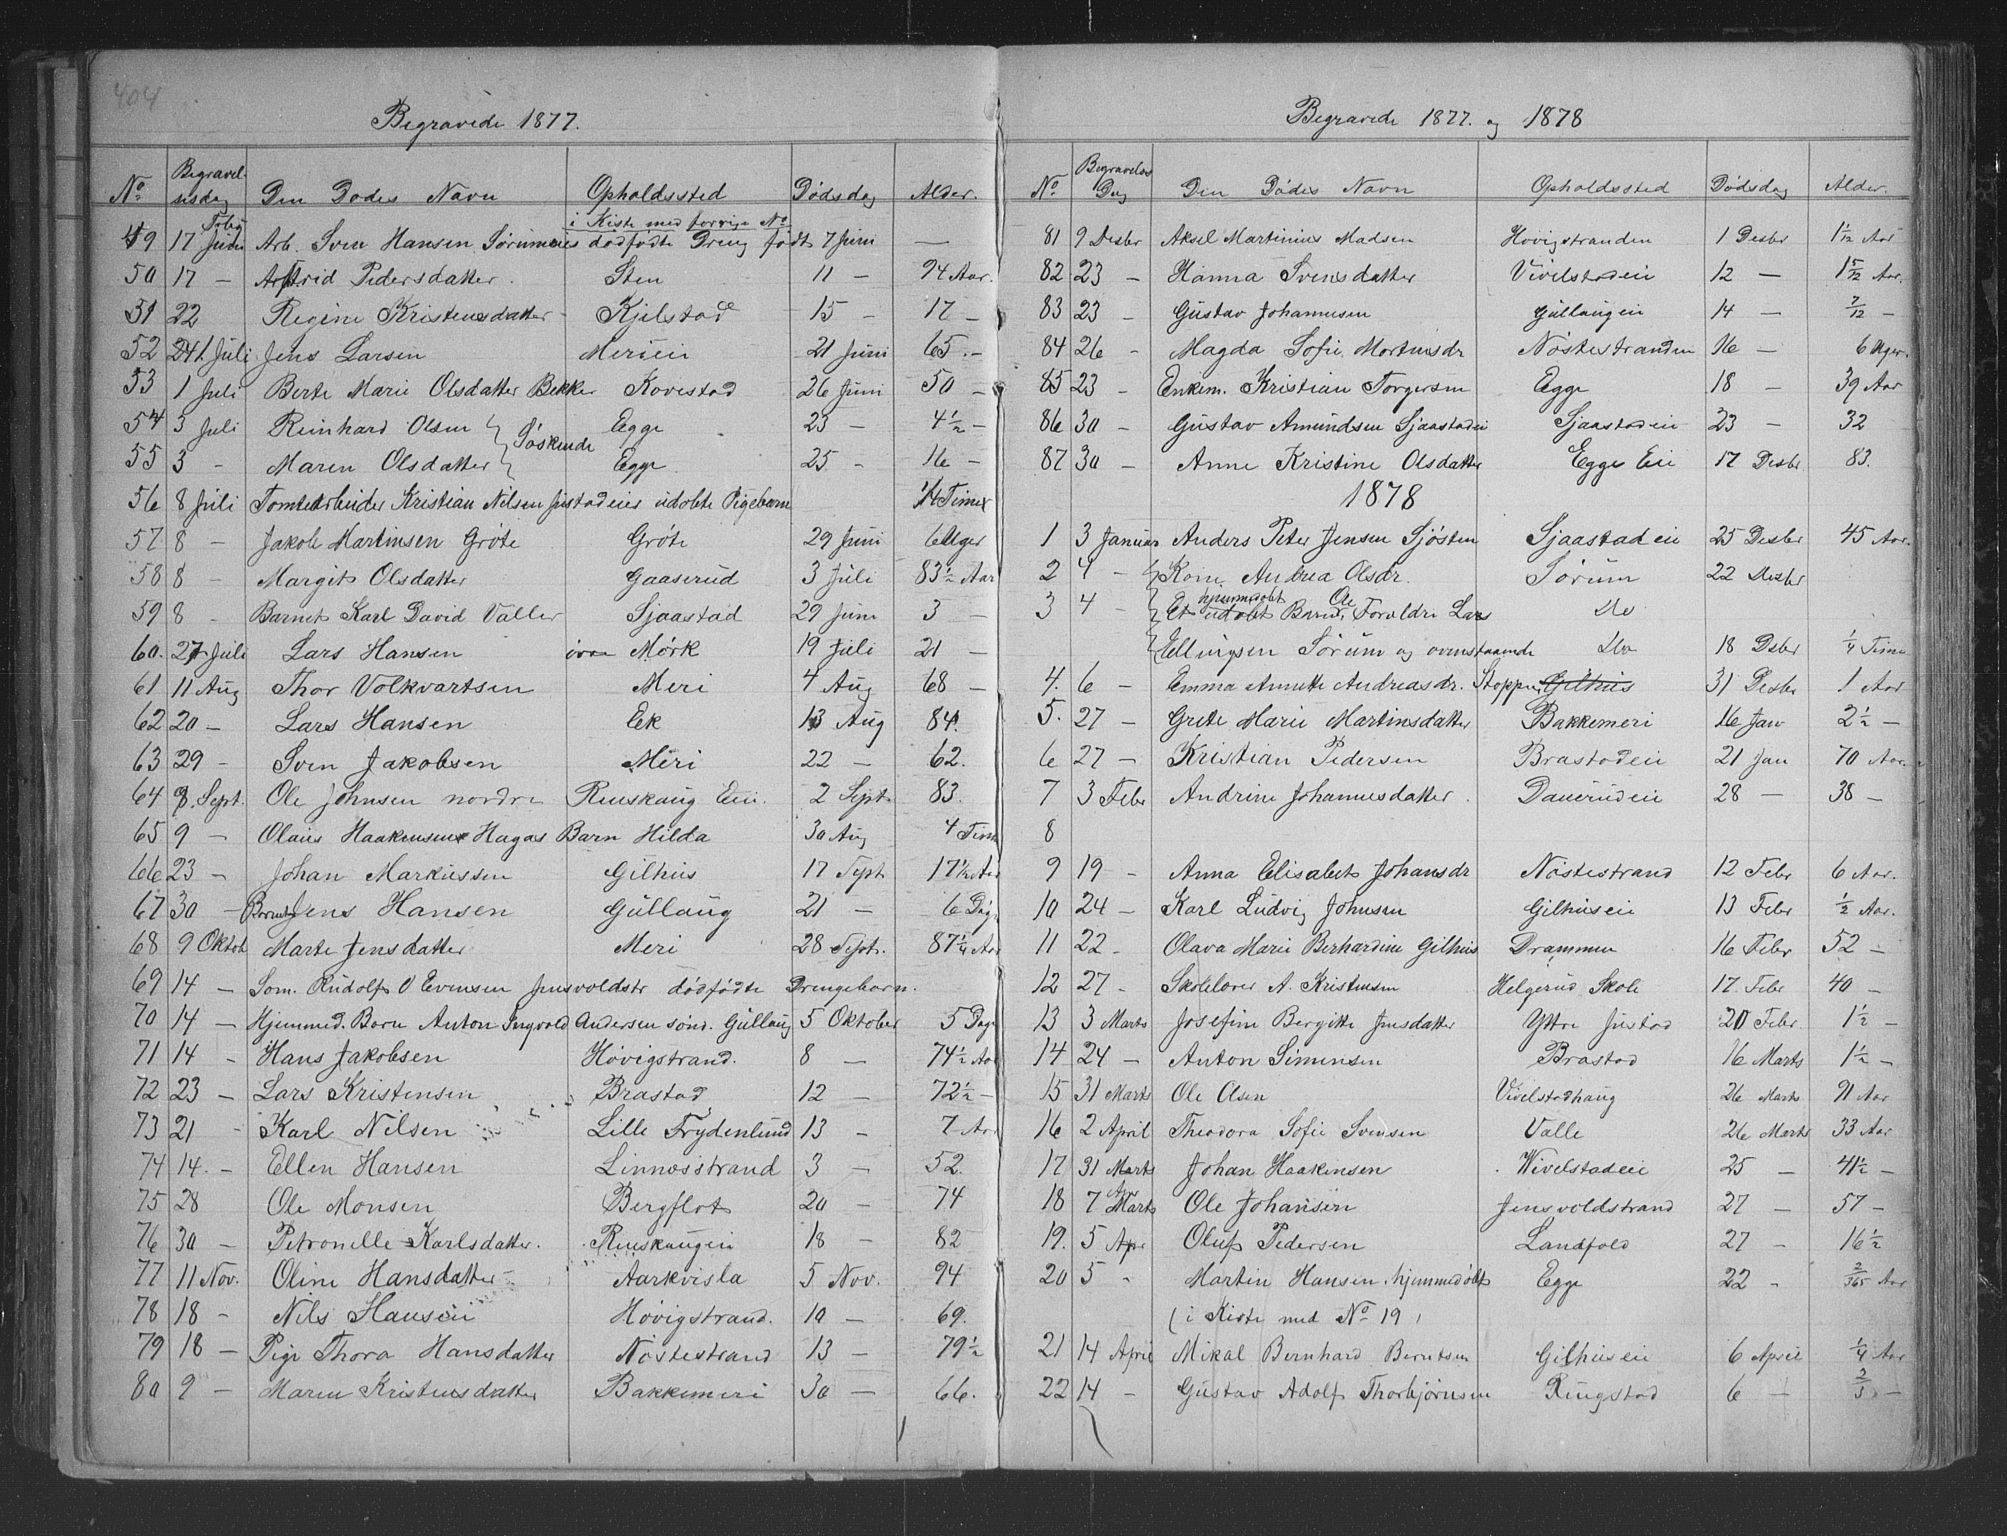 404
Begravede 1877.
No Begravelsesdag Den Dødes Navn Opholdssted Dødsdag Alder.
i Kiste med forrige No
49 17 Juni Arb. Sven Hansen Sørumeies dødfødte Dreng født 7 Juni —
50 17 — Astrid Pedersdatter. Sten 11 — 94 Aar.
51 22 Regine Kristensdatter Kjelstad 15 — 17 —
52 24 Juli Jens Larsen Merieie 21 Juni 65 —
53 1 Juli Berte Marie Olsdatter Bekke Kovestad 26 Juni 50 —
54 3 Juli Reinhard Olsen } Søskende Egge 23 — 4½ —
55 3 — Maren Olsdatter } Egge 25 — 16 —
56 8 Juli Tomtearbeider Kristian Nilsen Justadeies udøbte Pigebarn ¼ Time
57 8 — Jakob Martinsen Gröte Gröte 29 Juni 6 Uger
58 8 — Margit Olsdatter Gaaserud 3 Juli 83½ Aar
59 8 — Barnet Karl David Valler Sjaastad 29 Juni 3 —
60. 27 Juli Lars Hansen övre Mörk 19 Juli 21 —
61 11 Aug Thor Volkvartsen Meri 4 Aug 68 —
62 20 — Lars Hansen Ek 13 Aug 84.
63 29 — Sven Jakobsen Meri 22 — 62.
64 9 Sept. Ole Johnsen nordre Renskaug Eie. 2 Sept 83.
65 9 — Olaus Haakensen Hagas Barn Hilda 30 Aug 4 Tim
66 23 — Johan Markussen Gilhus 17 Sept 17½ Aar
67 30 — Barnet Jens Hansen Gullaug 21 — 6 Dag
68 9 Oktob Marte Jensdatter Meri 28 Sept. 87¼ Aar
69 14 — Søm. Rudolf O Evensen Jensvoldstr dödfödte Drengebarn.
70 14 — Hjemmed. Barn Anton Ingvold Andersen sönd. Gullaug 5 Oktober 5 Dage
71 14 — Hans Jakobsen Hövigstrand. 8 — 74½ Aar
72 23 — Lars Kristensen Brastad 12 — 72½ —
73 21 - Karl Nilsen Lille Frydenlund 13 — 7 Aar
74 14. — Ellen Hansen Linnæsstrand 3 — 52.
75 28 Ole Monsen Bergflot 20 — 74
76 30 — Petronelle Karlsdatter. Renskaugeie 18 — 82
77 11 Nov. Oline Hansdatter Aarkvisla 5 Nov. 94
78 18 — Nils Hansen Hövigstrand. 10 — 69.
79 18 — Pige Thora Hansdatter Nöstestrand 13 — 79½
80 9 — Maren Kristensdatter Bakkemeri 30 — 66.
Begravede 1877. og 1878
No Begravelses Dag Den Dødes Navn Opholdssted Dødsdag Alder.
81 9 Desbr Aksel Martinius Madsen Hövigstranden 1 Desbr 1 1/12 Aar
82 23 — Hanna Svensdatter Vivelstadeie 12 — 1 5/12 Aar.
83 23 — Gustav Johannesen Gullaugeie 14 — 7/12 —
84 26 - Magda Sofie Mortensdr Nöstestranden 16 — 6 Uger
85 23 — Enkem. Kristian Torgersen Egge 18 - 39 Aar
86 30 — Gustav Amundsen Sjaastadeie Sjaastadeie 23 — 32
87 30 — Anne Kristine Olsdatter Egge Eie 17 Desbr 83.
1878
1 3 Januar Anders Peter Jensen Sjösten Sjaastadeie 25 Desbr 45 Aar.
2 4 — Kone Andrea Olsdr. Sörum 22 Desbr
3 4 — Et hjemmedøbt Barn, Forældre Ole Lars Do
Ellingsen Sörum og ovenstaaende Do 18 Dsbr ¼ Time
4. 6 — Emma Annette Andreasdr. Stoppen Gilhus 31 Desbr 1 Aar
5. 27 — Grete Marie Martinsdatter Bakkemeri 16 Jan 2½ —
6 27 — Kristian Pedersen Brastadeie 21 Jan 70 Aar.
7 3 Febr Andrine Johannesdatter. Dauerudeie 28 — 38 —
8
9 19 — Anna Elisabet Johansdr Nöstestrand 12 Febr 6 Aar.
10 24 — Karl Ludvig Johnsen Gilhuseie 13 Febr ½ Aar.
11 22 - Olava Marie Berhardine Gilhus Drammen 16 Febr 52 —
12 27 - Skolelærer A. Kristensen Helgerud Skole 17 Febr 40 —
13 3 Marts Josefine Bergitte Jensdatter Yttre Justad 20 Febr 1½ —
14 24 — Anton Simensen Brastad 16 Marts 1½ —
15 31 Marts Ole Olsen Vivelstadhaug 26 Marts 91 Aar
16 2 April Theodora Sofie Svensen Valle 26 Marts 33 Aar
17 31 Marts Johan Haakensen Wivelstadeie 25 — 41½ —
18 7 Apr Marts Ole Johansen Jensvoldstrand 27 — 57 —
19. 5 Apr Oluf Pedersen Landfald 27 — 16½
20 5 - Martin Hansen, hjemmedöbt Egge 22 - 2/365 Aar
(i Kiste med No 19)
21 14 April Mikal Bernhard Berntsen Gilhuseie 6 April ¼ Aar
22 14 - Gustav Adolf Thorbjörnsen Ringstad 6 — 2/3 —